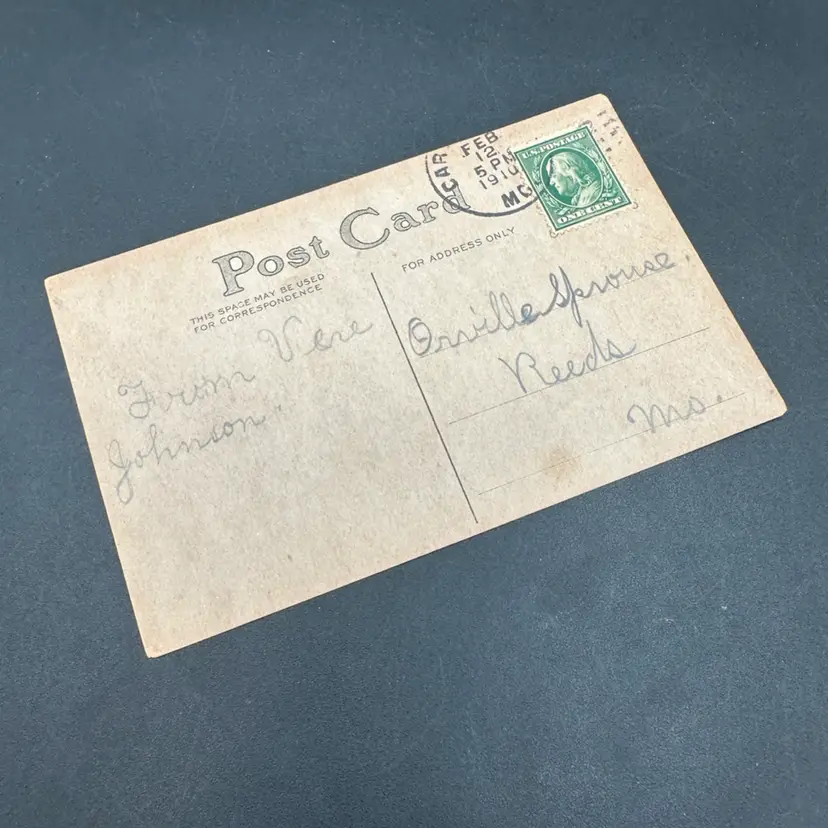 CAR
FEB
12
5 PM
1910
MO
U.S. POSTAGE
ONE CENT
Post Card
THIS SPACE MAY BE USED
FOR CORRESPONDENCE
FOR ADDRESS ONLY
From Vere
Johnson.
Orville Sprouse,
Reeds
Mo.